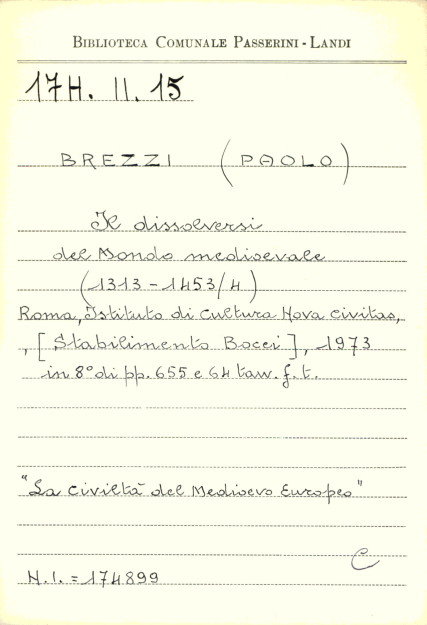 BIBLIOTECA COMUNALE PASSERINI - LANDI
17H. II. 15
BREZZI (PAOLO)
Il dissolversi
del Mondo medioevale
(1313-1453/4)
Roma, Istituto di Cultura Nova Civitas,
, [Stabilimento Bocci], 1973
in 8° di pp. 655 e 64 tavv. f. t.
"La civiltà del Medioevo Europeo"
C
N.I. = 174899